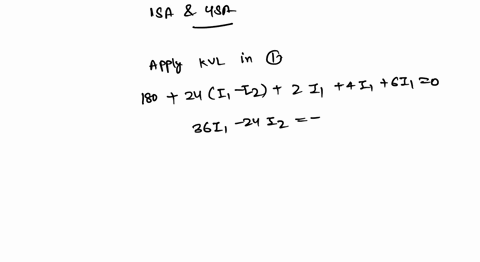 15A & 45A
Apply KVL in ①
180 + 24 (I₁ - I₂) + 2 I₁ + 4 I₁ + 6 I₁ = 0
36 I₁ - 24 I₂ = -